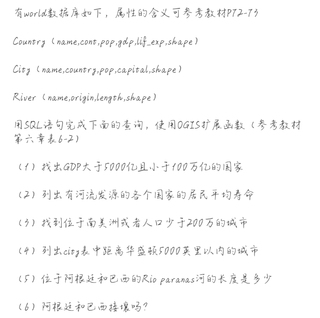 有world数据库如下，属性的含义可参考教材P72-73
Country（name,cont,pop,gdp,life_exp,shape）
City（name,country,pop,capital,shape）
River（name,origin,length,shape）
用SQL语句完成下面的查询，使用OGIS扩展函数（参考教材
第六章表6-2）
（1）找出GDP大于5000亿且小于100万亿的国家
（2）列出有河流发源的各个国家的居民平均寿命
（3）找到位于南美洲或者人口少于200万的城市
（4）列出city表中距离华盛顿5000英里以内的城市
（5）位于阿根廷和巴西的Rio paranas河的长度是多少
（6）阿根廷和巴西接壤吗？